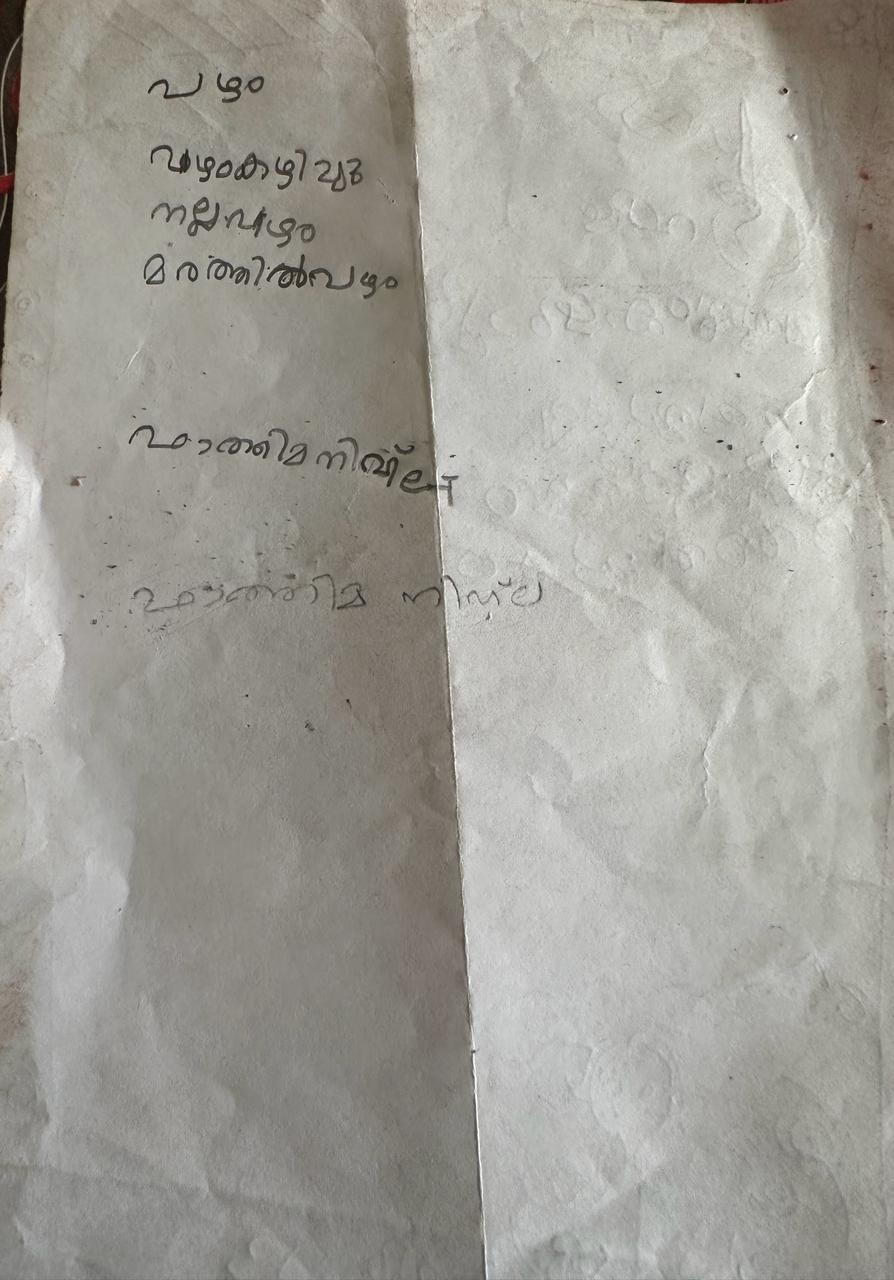 പഴം
പഴംകഴിച്ചു
നല്ലപഴം
മരത്തിൽപഴം
ഫാത്തിമ
ഫാത്തിമ